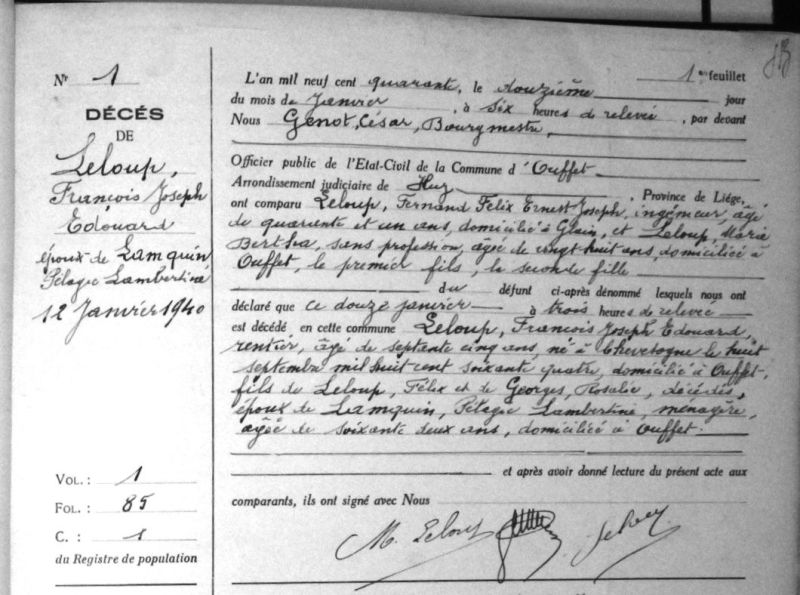 Nº 1
DÉCÉS
DE
Leloup,
François Joseph
Edouard
époux de Lamquin
Pélagie Lambertine
12 Janvier 1940
VOL. : 1
FOL. : 85
C. : 1
du Registre de population
1er feuillet
L'an mil neuf cent quarante, le douzième jour
du mois de Janvier, à six heures de relevée, par devant
Nous Genot, César, Bourgmestre,
Officier public de l'Etat-Civil de la Commune d'Ouffet
Arrondissement judiciaire de Huy, Province de Liége,
ont comparu Leloup, Fernand Felix Ernest Joseph, ingénieur, âgé
de quarante et un ans, domicilié à Glain, et Leloup, Maria
Bertha, sans profession, âgée de vingt huit ans, domiciliée à
Ouffet, le premier fils, la seconde fille
du défunt ci-après dénommé lesquels nous ont
déclaré que ce douze janvier à trois heures de relevée
est décédé en cette commune Leloup, François Joseph Edouard,
rentier, âgé de septante cinq ans, né à Chevetogne le huit
septembre mil huit cent soixante quatre, domicilié à Ouffet,
fils de Leloup, Félix et de Georges, Rosalie, décédés,
époux de Lamquin, Pélagie Lambertine, ménagère,
âgée de soixante deux ans, domiciliée à Ouffet.
et après avoir donné lecture du présent acte aux
comparants, ils ont signé avec Nous
M. Leloup